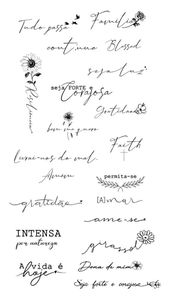 Tudo passa
Família
continue
Blessed
seja luz
Resiliência
seja FORTE e
Corajosa
Gratidão
bem me quero
Faith
Livrai-nos do mal
Amém
permita-se
gratidão
[A]mar
ame-se
INTENSA
por natureza
girassol
A vida é
hoje
Dona de mim
Seja forte e corajosa